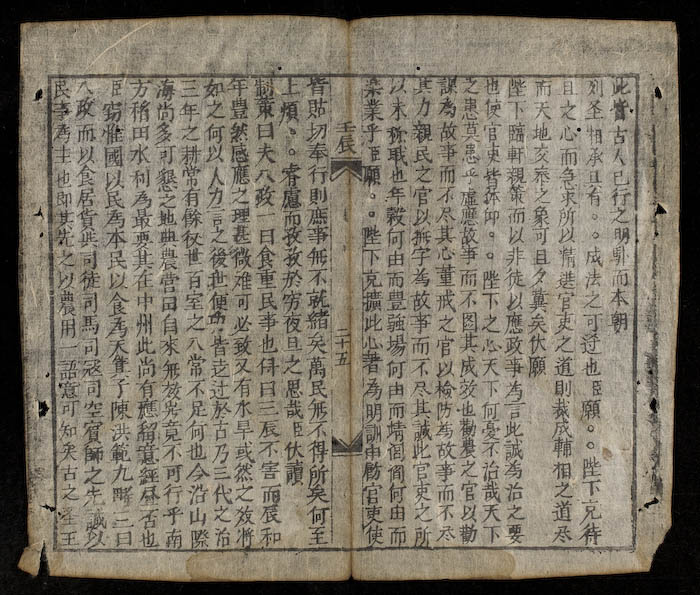 此皆古人已行之明鑑而本朝
列圣相承且有。。成法之可遵也臣願。。陛下克待
旦之心而急求所以精選官吏之道則裁成輔相之道尽
而天地交泰之象可旦夕冀矣伏願
陛下臨軒親策而以非徒以應政事為言此誠為治之要
也使官吏皆体仰。。陛下之心天下何憂不治哉天下
之患莫患乎虛應故事而不图其成效也勸農之官以勸
課為故事而不尽其心董戒之官以檢防為故事而不尽
其力親民之官以撫字為故事而不尽其誠此官吏之所
以未称職也年穀何由而豐疆場何由而靖閭閻何由而
楽業乎臣願。。陛下克擴此心著為明訓申飭官吏使
壬辰
二十五
皆貼切奉行則庶事無不就緒矣萬民無不得所矣何至
上煩。。睿慮而孜孜於穷夜旦之思哉臣伏讀
制策曰夫八政一曰食重民事也傳曰三辰不害而辰和
年豊然感應之理甚微难可必致又有水旱或然之效將
如之何以人力言之後世便皆迂於古乃三代之治
三年之耕常有餘後世百室之入常不足何也今沿山際
海尚多可墾之地典農營田自來無效岂竟不可行乎南
方稻田水利為最要其在中州此尚有應留意經厝否也
臣窃惟國以民為本民以食為天箕子陳洪範九畴二曰
八政而以食居貨與司徒司馬司寇司空賓師之先誠以
民事為主也即其先之以農用一語意可知矣古之圣王